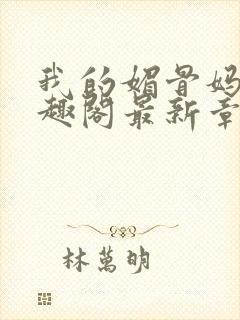 我的媚骨妈
趣阁最新章
林萬明